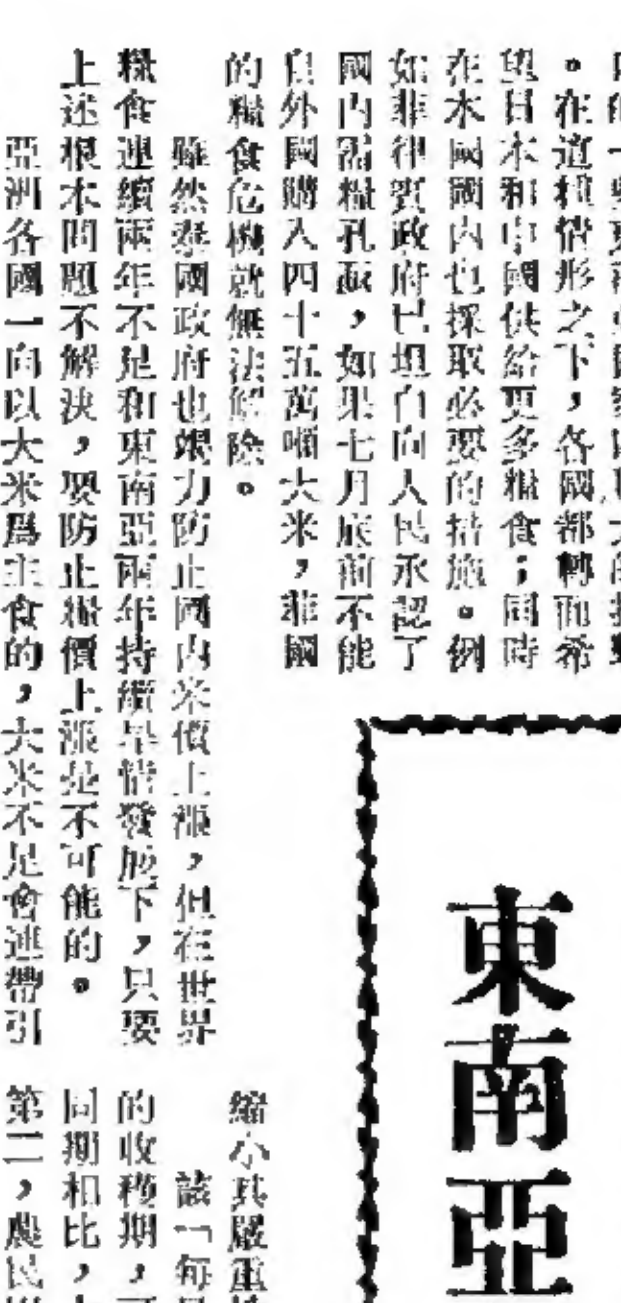 。在這種情形之下，各國都轉而希
望日本和中國供給更多糧食；同時
在本國國內也採取必要的措施。例
如菲律賓政府已坦白向人民承認了
國內需糧孔亟，如果七月底前不能
自外國購入四十五萬噸大米，菲國
的糧食危機就無法解除。
雖然泰國政府也竭力防止國內米價上漲，但在世界
糧食連續兩年不足和東南亞兩年持續旱情發展下，只要
上述根本問題不解決，要防止糧價上漲是不可能的。
亞洲各國一向以大米爲主食的，大米不足會連帶引
東南亞
縮小其嚴重
該一每
的收穫期，
同期相比，
第二，農民